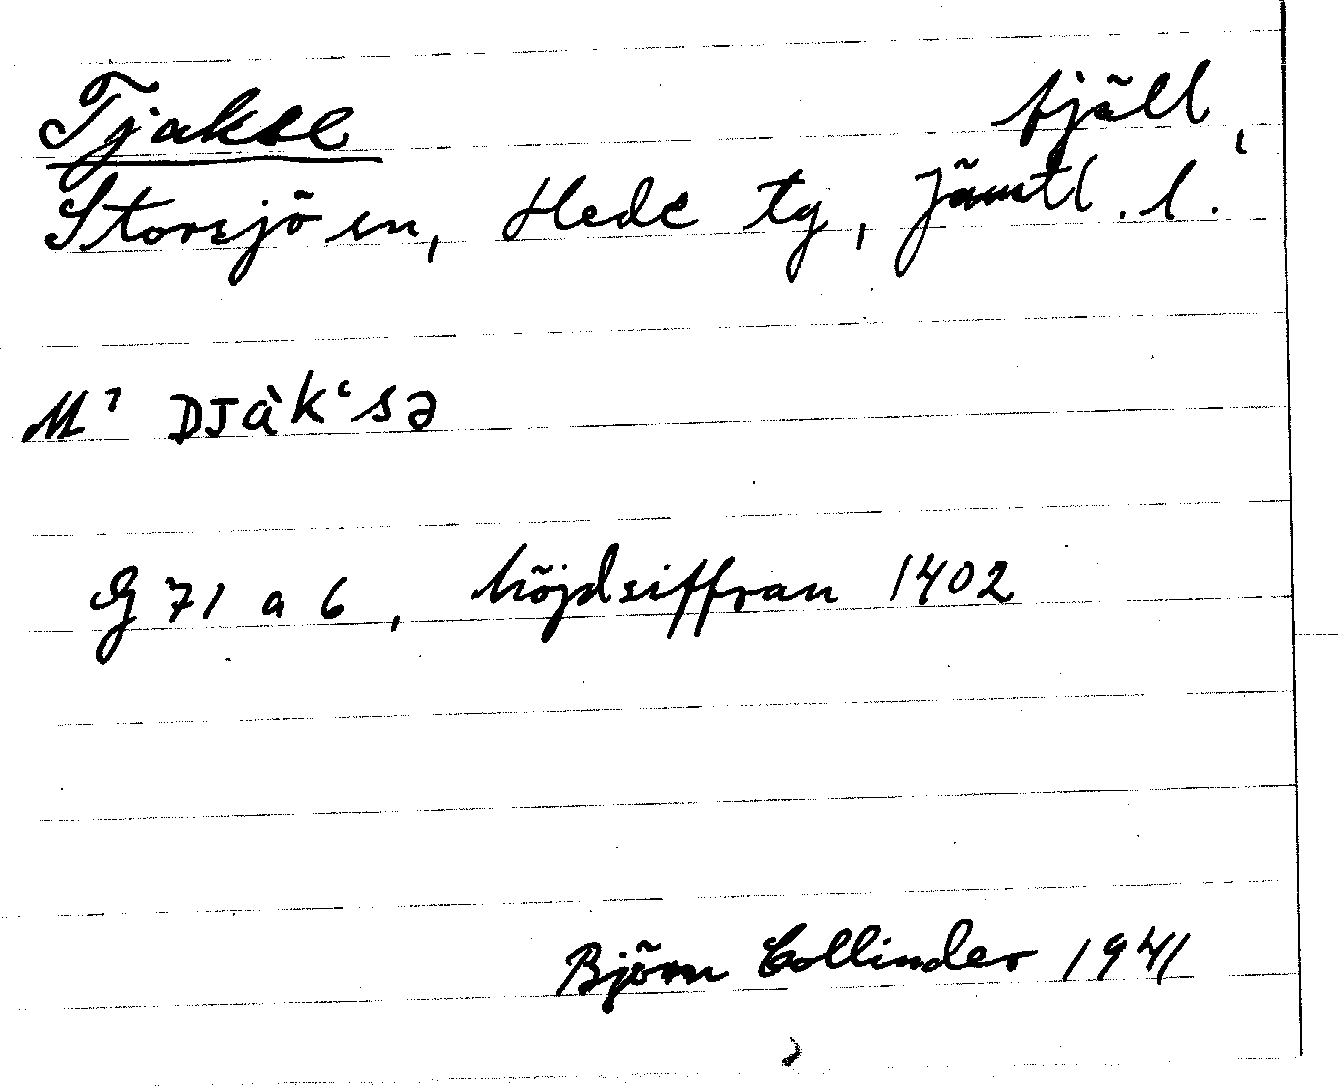 Tjakse fjäll,
Storsjö sn, Hede tg, Jämtl. l.
M⁷ DJàkʻsə
G 71 a 6, höjdsiffran 1402
Björn Collinder 1941